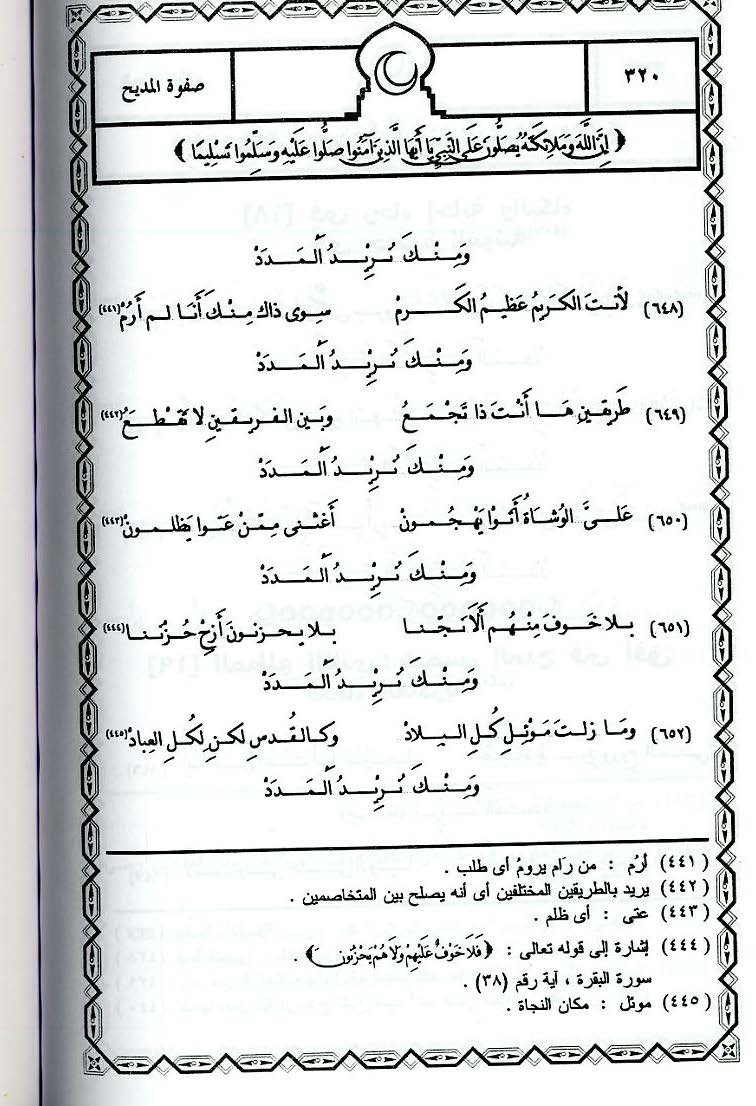 ٣٢٠
صفوة المديح
﴿ إِنَّ اللَّهَ وَمَلَائِكَتَهُ يُصَلُّونَ عَلَى النَّبِيِّ يَا أَيُّهَا الَّذِينَ آمَنُوا صَلُّوا عَلَيْهِ وَسَلِّمُوا تَسْلِيمًا ﴾
وَمِنْكَ نُرِيْدُ الْمَدَدْ
(٦٤٨) لأنتَ الكريمُ عظيمُ الكَرَمْ سوى ذاك مِنْكَ أَنَا لم أَرُمْ (٤٤١)
وَمِنْكَ نُرِيْدُ الْمَدَدْ
(٦٤٩) طَرِيقينِ هَا أَنْتَ ذا تَجْمَعُ وبَين الفريقينِ لا تَقْطَعُ (٤٤٢)
وَمِنْكَ نُرِيْدُ الْمَدَدْ
(٦٥٠) عَلَىَّ الوُشَاةُ أَتَوْا يَهْجُمونْ أَغثنى مِمَّنْ عَتَوا يَظلمونْ (٤٤٣)
وَمِنْكَ نُرِيْدُ الْمَدَدْ
(٦٥١) بلا خَوفَ مِنْهُم أَلَا نَجِّنا بلا يحزنونَ أَزِحْ حُزْنَنا (٤٤٤)
وَمِنْكَ نُرِيْدُ الْمَدَدْ
(٦٥٢) ومَا زلتَ مَوْئِلَ كُلِّ البلادْ وكالقُدسِ لكن لِكُلِ العِبادْ (٤٤٥)
وَمِنْكَ نُرِيْدُ الْمَدَدْ
(٤٤١) أرُم : من رَام يرومُ أى طلب .
(٤٤٢) يريد بالطريقين المختلفين أى أنه يصلح بين المتخاصمين .
(٤٤٣) عتى : أى ظلم .
(٤٤٤) إشارة إلى قوله تعالى : ﴿ فَلَا خَوْفٌ عَلَيْهِمْ وَلَا هُمْ يَحْزَنُونَ ﴾ .
سورة البقرة ، آية رقم (٣٨) .
(٤٤٥) موئل : مكان النجاة .